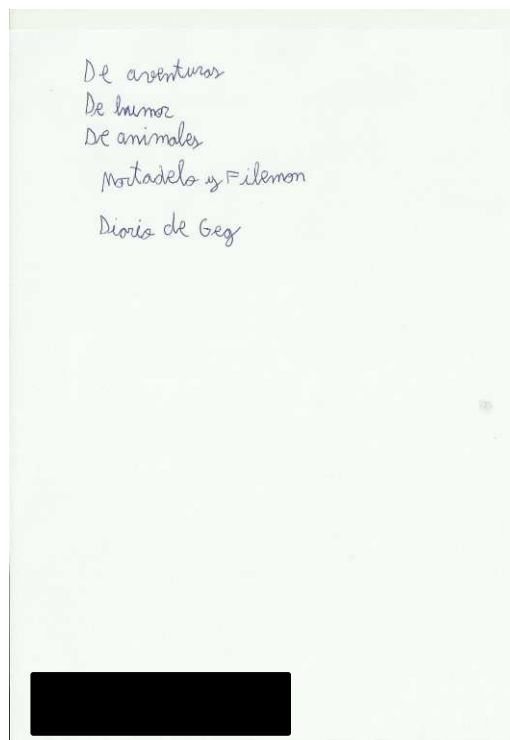 De aventuras
De humor
De animales
Mortadelo y Filemon
Diario de Geg